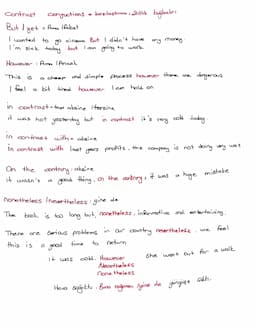 Contrast conjunctions +
But / yet = Ama / Fakat
I wanted to go cinema But I didn't have any money.
I'm sick today but I am going to work.
However : Ama / Ancak
This is a cheap and simple process however there are dangerous
I feel a bit tired however I am hold on
in contrast = tam aksine / tersine
it was hot yesterday but in contrast it's very cold today.
in contrast with = aksine
In contrast with last years profits, the company is not doing very well
On the contrary : aksine
It wasn't a good thing, on the contrary, it was a huge mistake
nonetheless / Nevertheless : yine de
The book is too long but, nonetheless, informative and entertaining.
There are serious problems in our country nevertheless, we feel
this is a good time to return
it was cold. However she went out for a walk
Nevertheless
nonetheless
Hava soğuktu. Buna rağmen / yine de yürüyüşe çıktı.